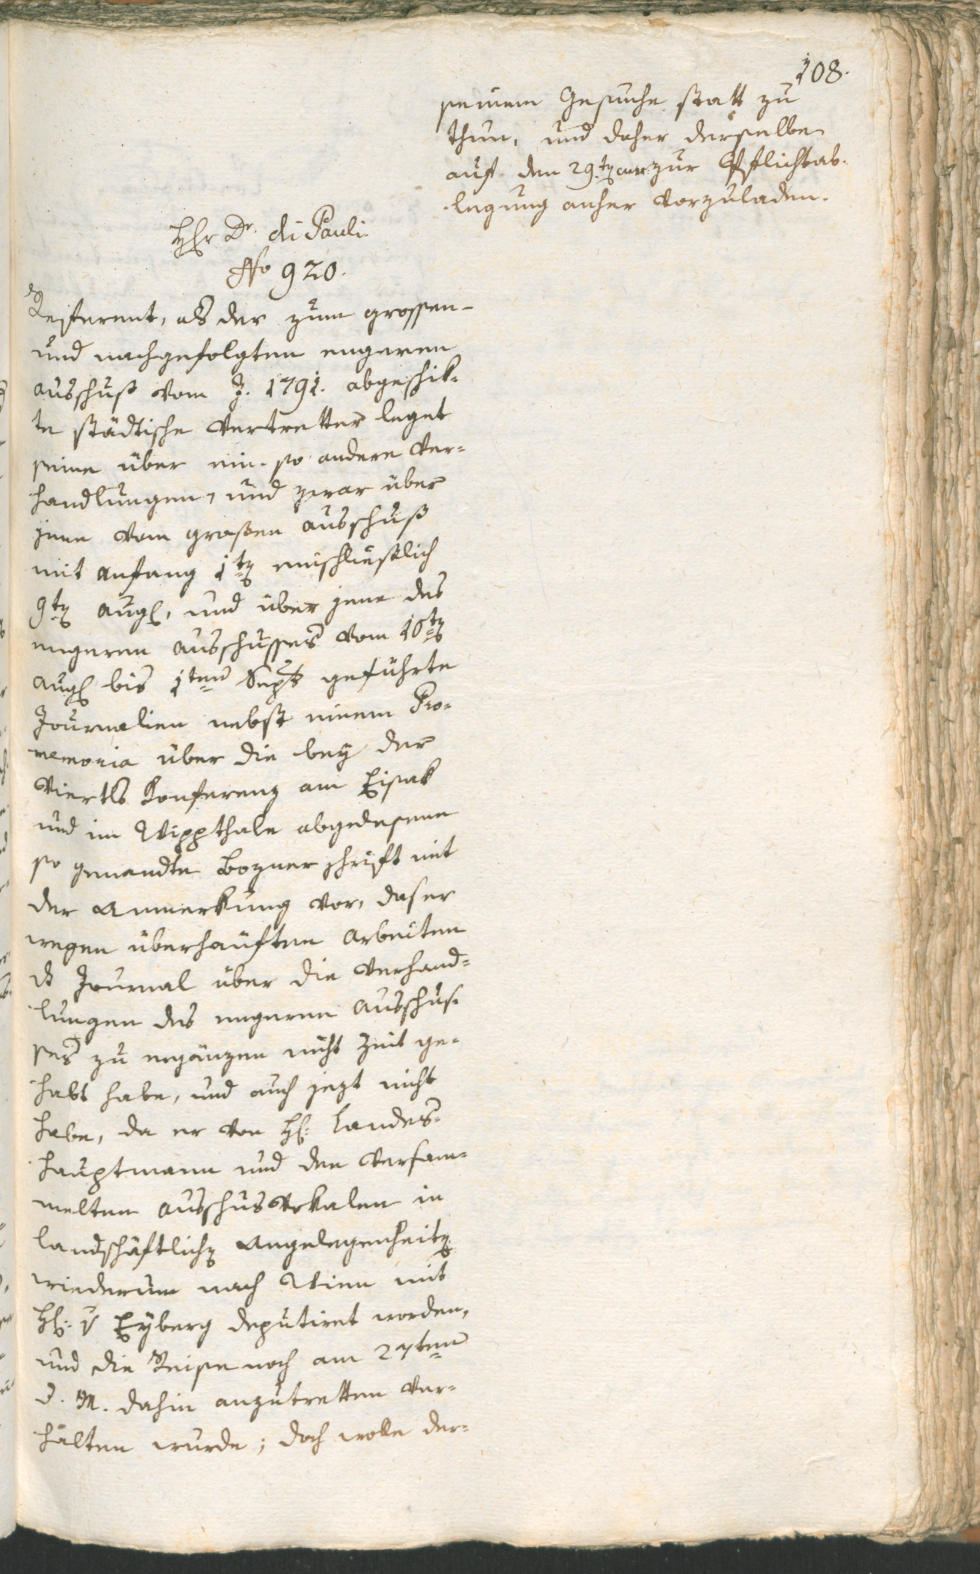 108.
seinem Gesuche statt zu
thun, und daher derselbe
auf den 29.t curr: zur Pflichtab-
legung anher vorzuladen.
Hr Dr. di Pauli
No 920.
Referent, als der zum grossen-
und nachgefolgten engeren
ausschuß vom J. 1791. abgeschik-
te städtische Vertretter leget
seine über ein- so andere Ver-
handlungen, und zwar über
jene vom großen ausschuß
mit anfang 1t einschließlich
9t aug, und über jene des
engeren ausschusses vom 10t
aug bis 1ten Sept geführte
Journalien nebst einem Pro-
memoria über die bey der
Viertls Konferenz am Eisak
und im Wippthale abgelesene
so genandte Bozner schrift mit
der Anmerkung vor, daß er
wegen überhäuften arbeiten
ds Journal über die Verhand-
lungen des engeren Ausschus-
ses zu ergänzen nicht Zeit ge-
habt habe, und auch jezt nicht
habe, da er von H: Landes-
hauptmann und den Versam-
melten Ausschus Vokalen in
landschäftlich Angelegenheit
wiederum nach Wien mit
H: v Eyberg deputiret worden,
und die Reise noch am 27ten
d. M. dahin anzutretten ver-
halten würde; doch wolle der-